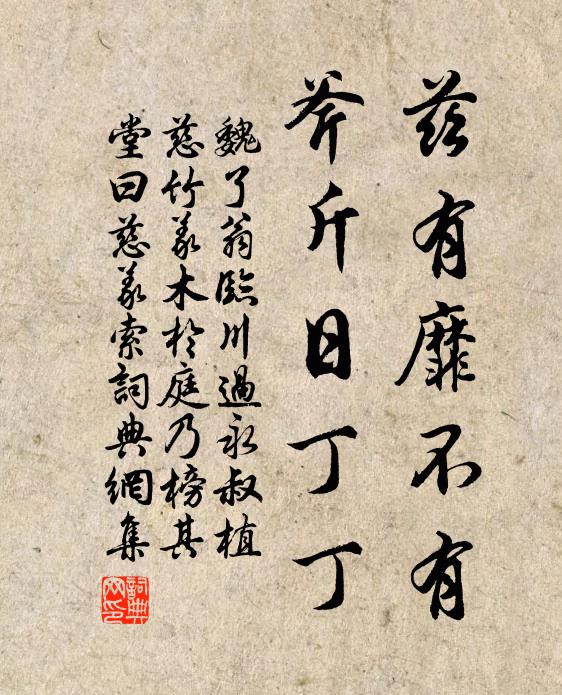 茲有靡不有
斧斤日丁丁
魏了翁臨川過永叔植
慈竹義木於庭乃榜其
堂曰慈義索詞典網集
詞典
网印